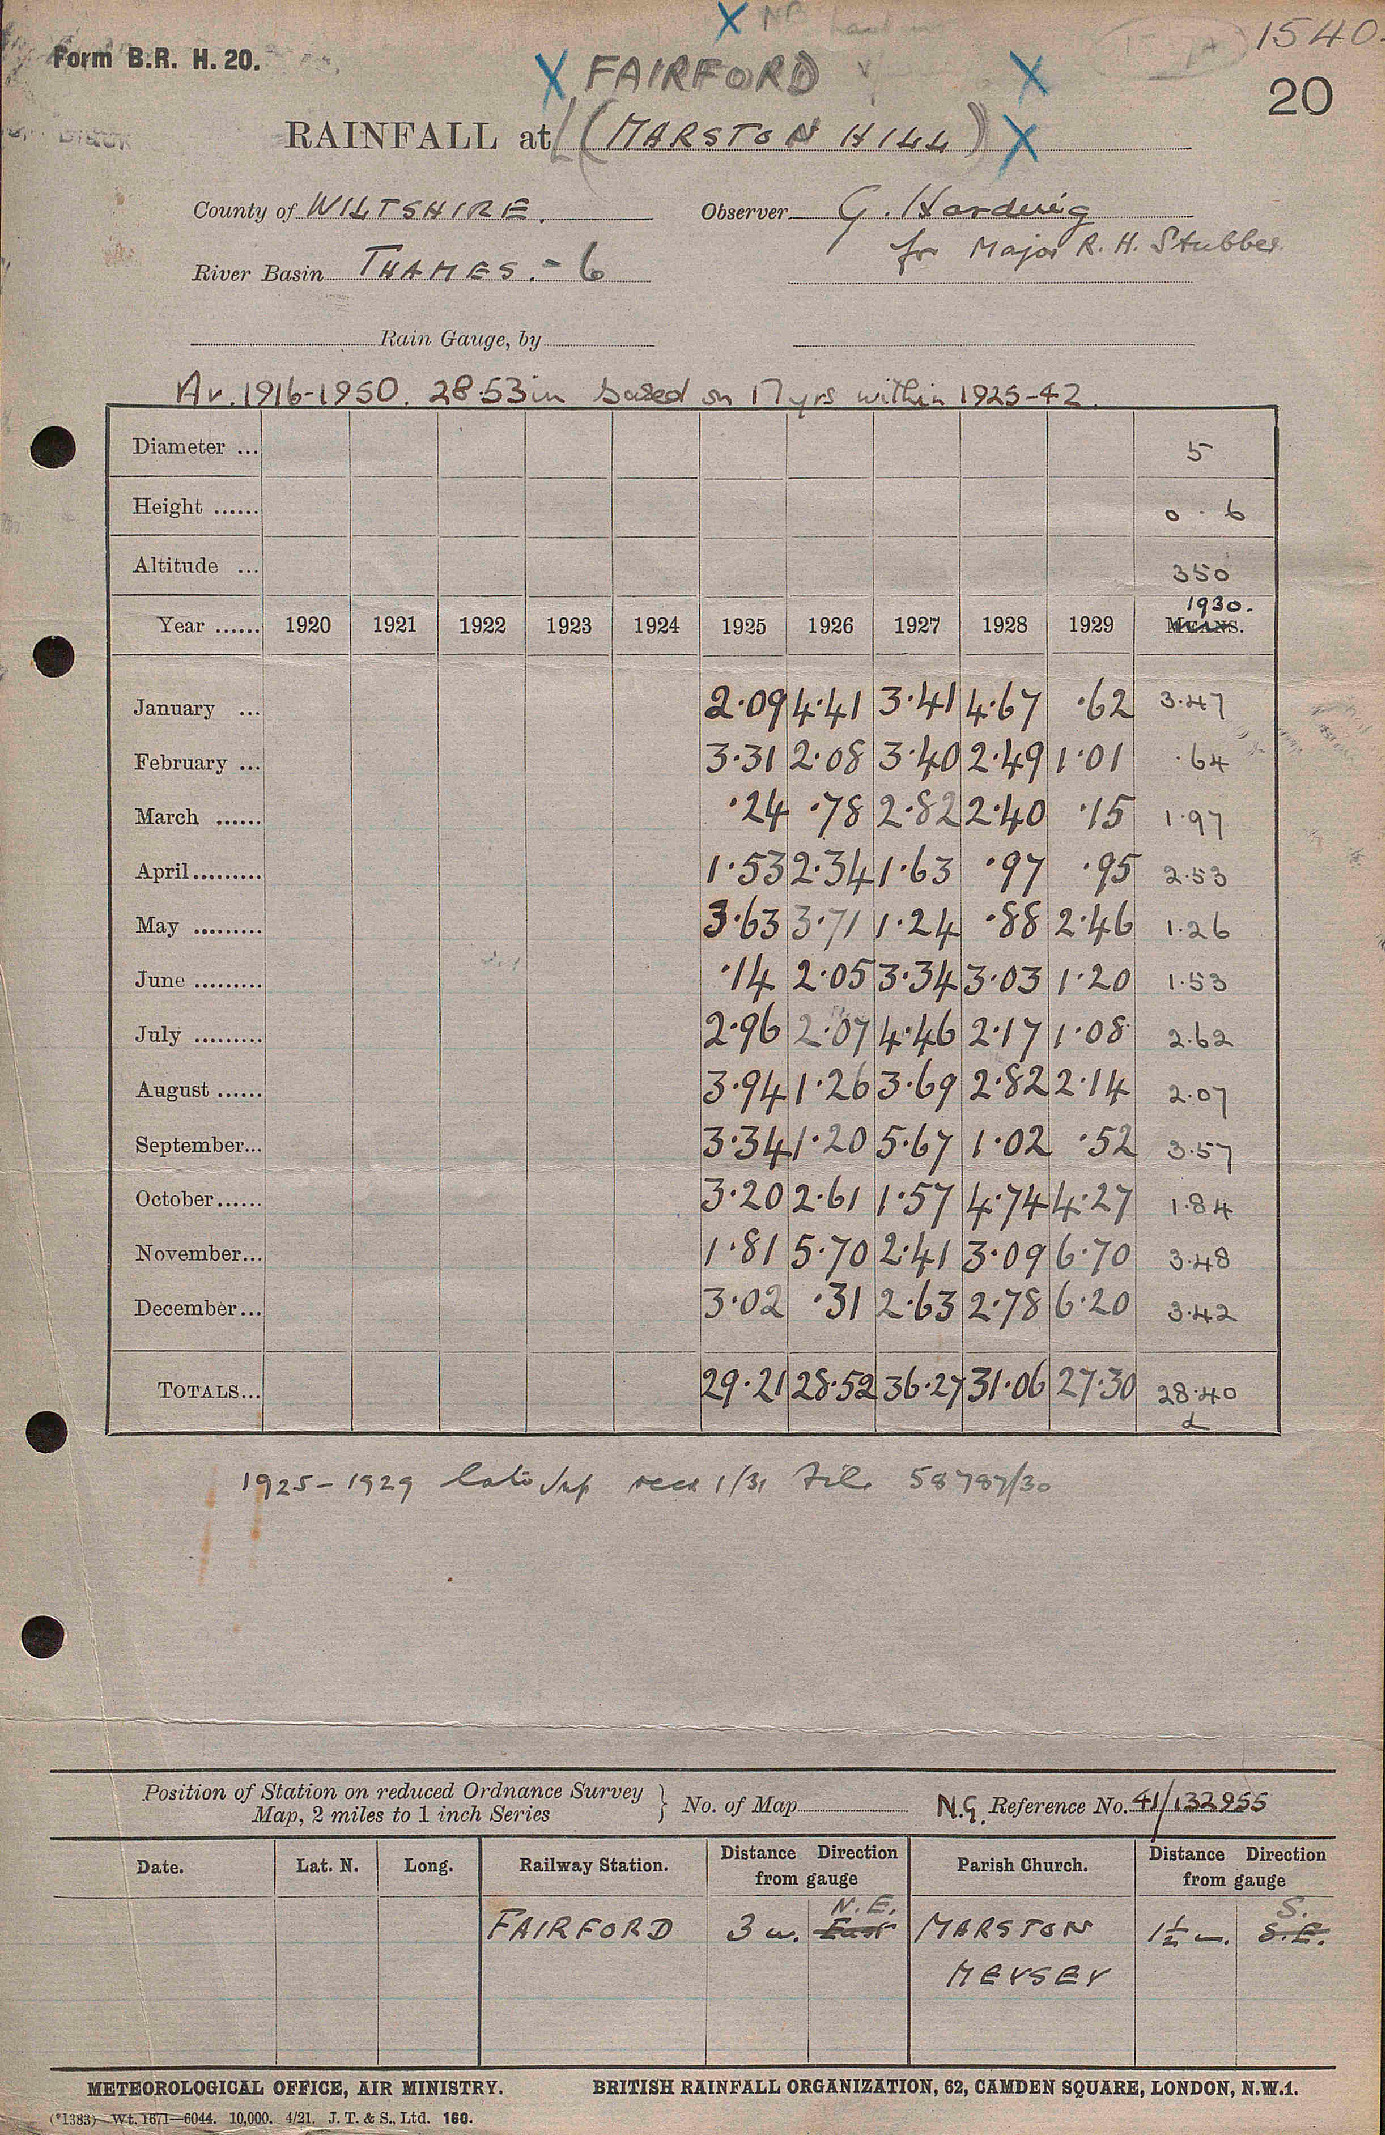 1540.
Form B.R. H. 20.
X FAIRFORD X
20
RAINFALL at (MARSTON HILL) X
County of WILTSHIRE. Observer G. Harding
for Major R. H. Stubber
River Basin THAMES. - 6
Rain Gauge, by
Av. 1916-1950. 28.53in based on 17 yrs within 1925-42.
Diameter ... 5
Height ...... 0 . 6
Altitude ... 350
1930.
Year ...... 1920 1921 1922 1923 1924 1925 1926 1927 1928 1929 MEANS.
January ... 2.09 4.41 3.41 4.67 .62 3.47
February ... 3.31 2.08 3.40 2.49 1.01 .64
March ...... .24 .78 2.82 2.40 .15 1.97
April......... 1.53 2.34 1.63 .97 .95 2.53
May ......... 3.63 3.71 1.24 .88 2.46 1.26
June ......... .14 2.05 3.34 3.03 1.20 1.53
July ......... 2.96 2.07 4.46 2.17 1.08 2.62
August ...... 3.94 1.26 3.69 2.82 2.14 2.07
September... 3.34 1.20 5.67 1.02 .52 3.57
October...... 3.20 2.61 1.57 4.74 4.27 1.84
November... 1.81 5.70 2.41 3.09 6.70 3.48
December... 3.02 .31 2.63 2.78 6.20 3.42
TOTALS... 29.21 28.52 36.27 31.06 27.30 28.40
d
1925-1929 1/31 File 58787/30
Position of Station on reduced Ordnance Survey
Map, 2 miles to 1 inch Series } No. of Map N.G. Reference No. 41/132955
Date. Lat. N. Long. Railway Station. Distance from gauge Direction Parish Church. Distance from gauge Direction
N.E. S.
FAIRFORD 3 m. East MARSTON 1½ m. S.E.
MEYSEY
METEOROLOGICAL OFFICE, AIR MINISTRY. BRITISH RAINFALL ORGANIZATION, 62, CAMDEN SQUARE, LONDON, N.W.1.
(*1383) Wt. 1671—6044. 10,000. 4/21. J. T. & S., Ltd. 160.